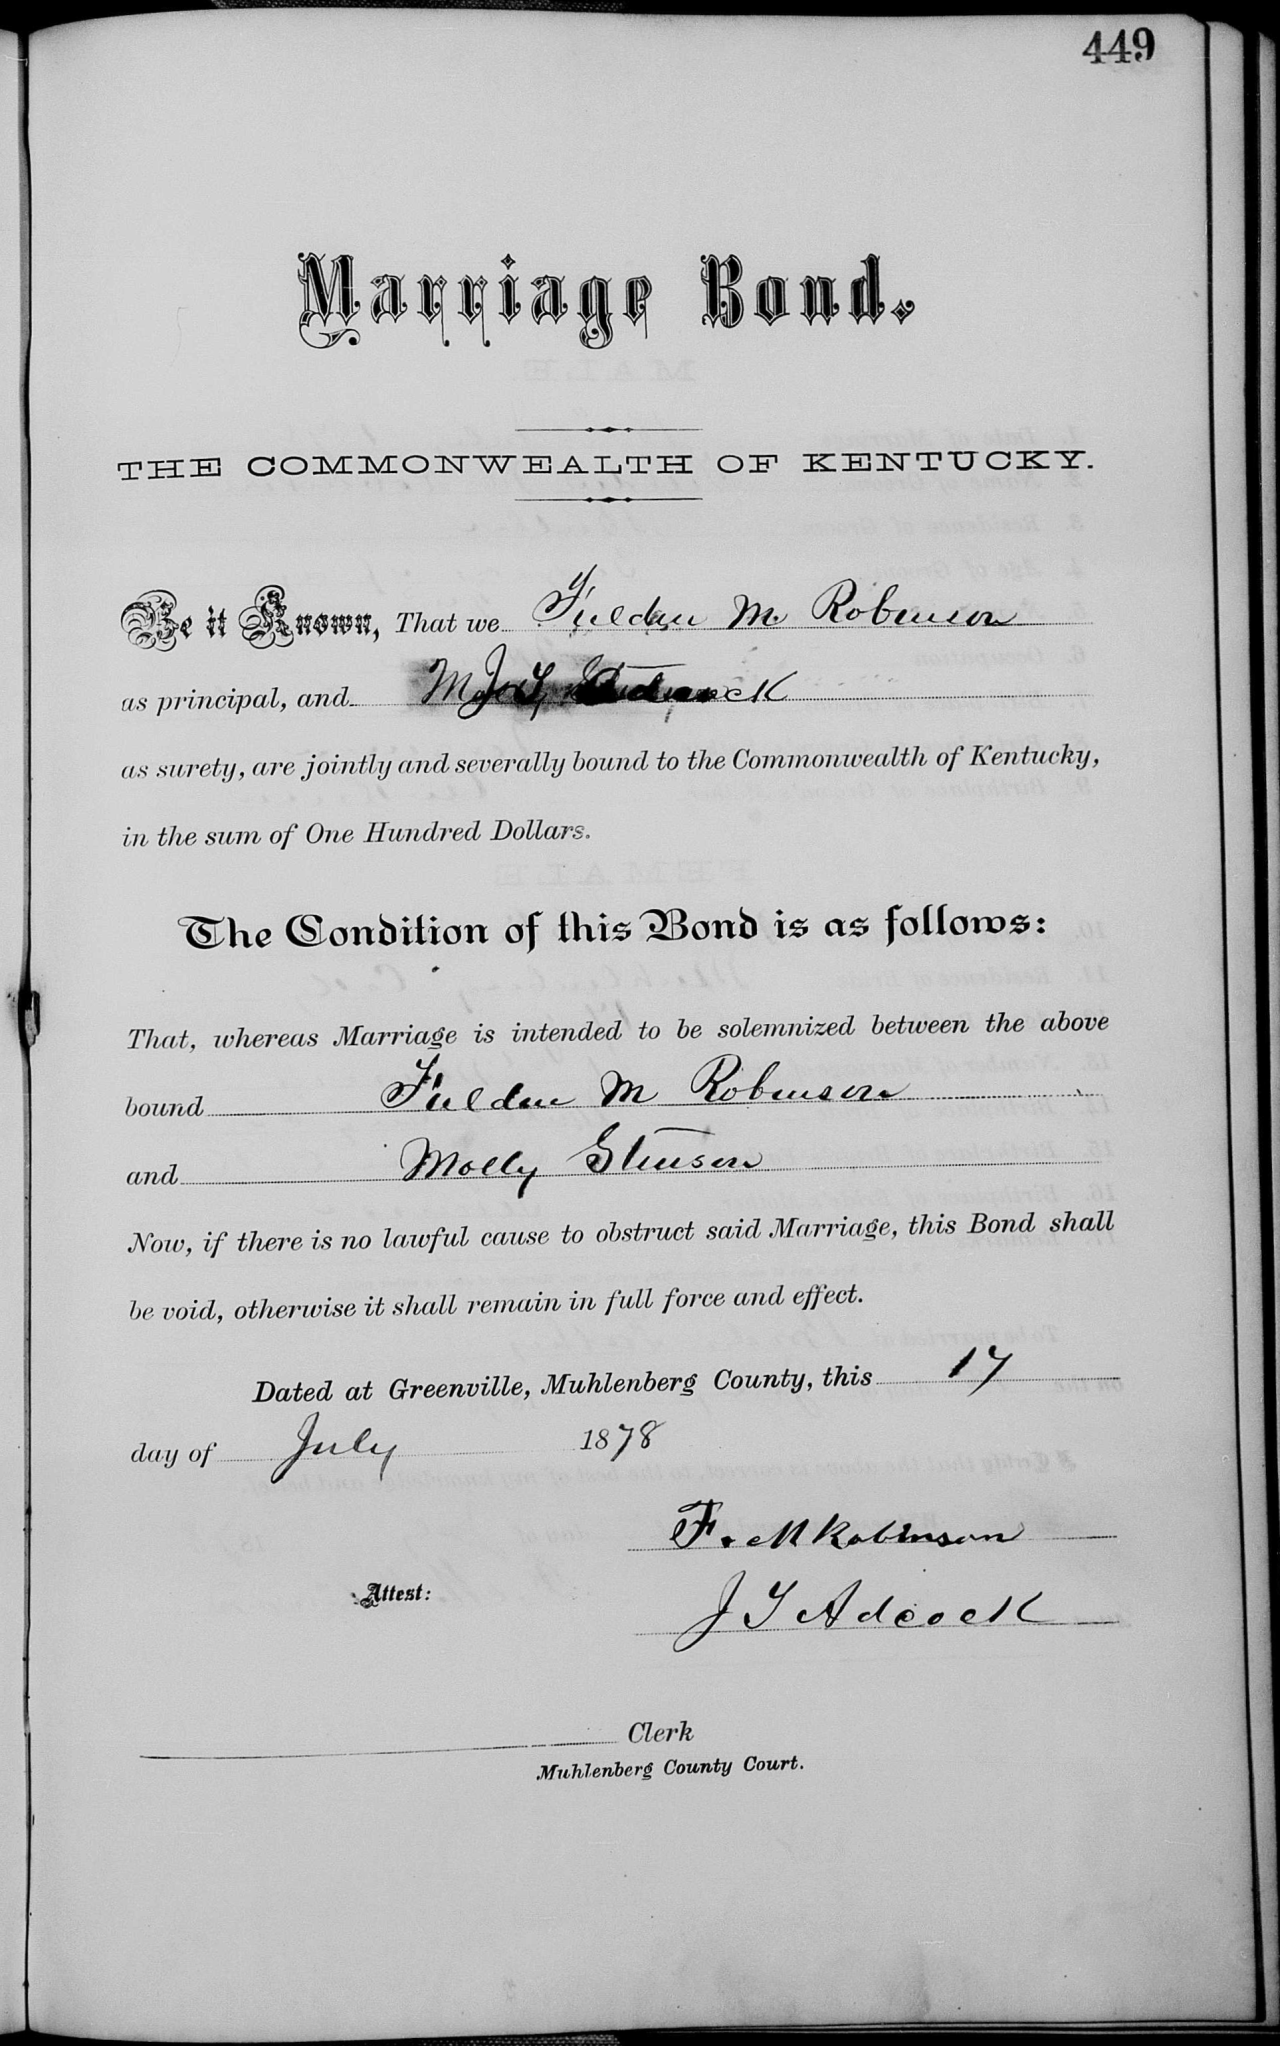 449
Marriage Bond.
THE COMMONWEALTH OF KENTUCKY.
Be it Known, That we Fielden M. Robinson
as principal, and J Y Adcock
as surety, are jointly and severally bound to the Commonwealth of Kentucky,
in the sum of One Hundred Dollars.
The Condition of this Bond is as follows:
That, whereas Marriage is intended to be solemnized between the above
bound Fielden M Robinson
and Molly Stinson
Now, if there is no lawful cause to obstruct said Marriage, this Bond shall
be void, otherwise it shall remain in full force and effect.
Dated at Greenville, Muhlenberg County, this 17
day of July 1878
F. M Robinson
Attest:
J Y Adcock
Clerk
Muhlenberg County Court.